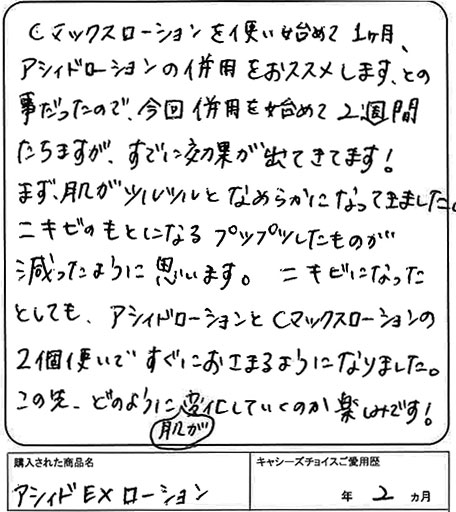 Cマックスローションを使い始めて1ヶ月、
アシィドローションの併用をおススメします、との
事だったので、今回併用を始めて2週間
たちますが、すでに効果が出てきてます！
まず、肌がツルツルとなめらかになってきました。
ニキビのもとになるプツプツしたものが
減ったように思います。ニキビになった
としても、アシィドローションとCマックスローションの
2個使いですぐにおさまるようになりました。
この先、どのように変化していくのか楽しみです！
肌が
購入された商品名
アシィドEXローション
キャシーズチョイスご愛用歴
年 2 ヵ月